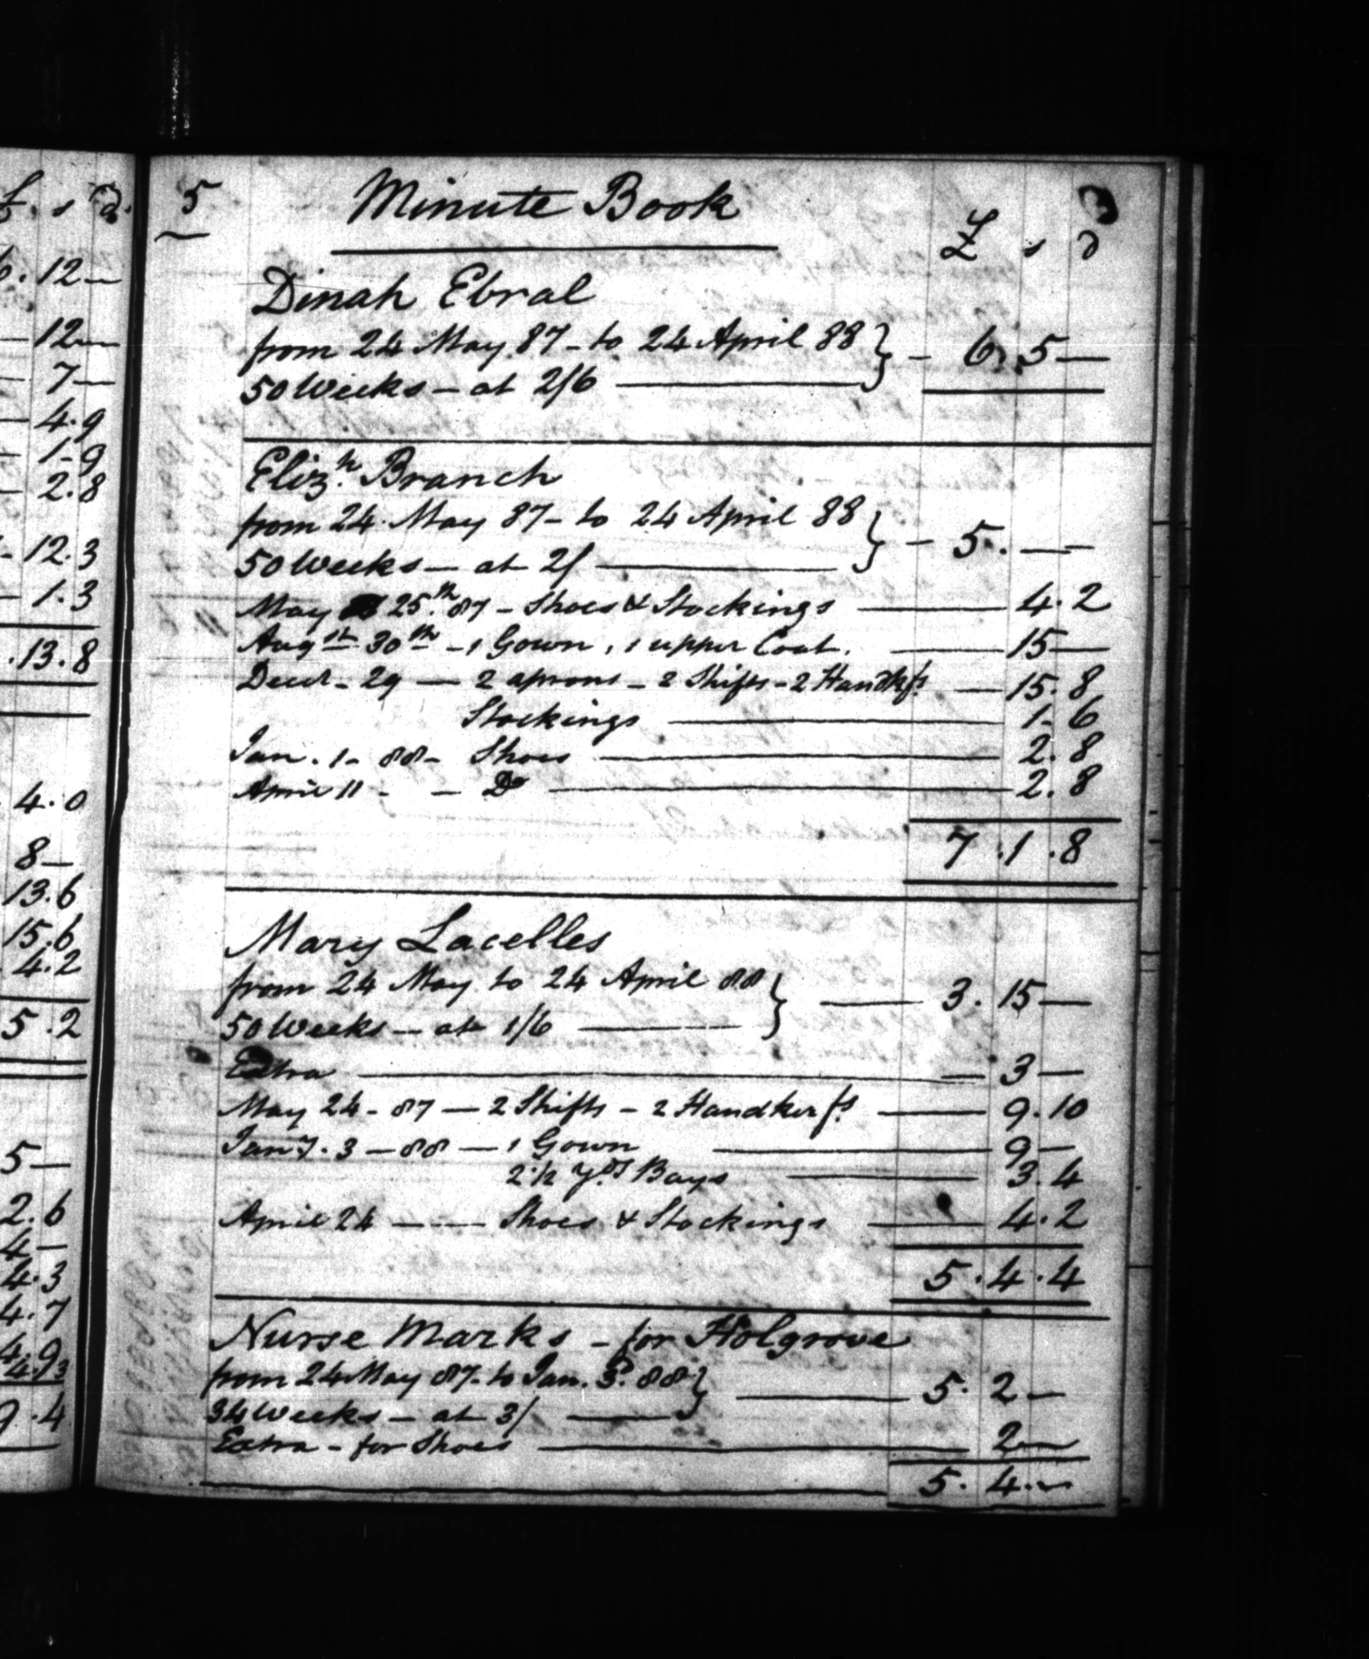 £ s d
6.12—
—12—
— 7—
— 4.9
— 1-9
— 2.8
12.3
— 1.3
.13.8
4.0
8—
13.6
15.6
4.2
5.2
5—
2.6
4—
4.3
4.7
4.9
9.4
5 Minute Book 3
£ s d
Dinah Ebral
from 24 May 87 - to 24 April 88 } - 6. 5 —
50 Weeks — at 2/6 ———
Elizh. Branch
from 24. May 87 - to 24 April 88 } - 5. — —
50 Weeks — at 2/ ———
May 25.th 87 - Shoes & Stockings ——— 4.2
Augst 30th - 1 Gown, 1 upper Coat. ——— 15 —
Decr - 29 — 2 aprons - 2 Shifts - 2 Handkfs — 15.8
Stockings ——— 1- 6
Jan. 1 - 88 - Shoes ——— 2.8
April 11 - — Do ——— 2.8
7 .1 .8
Mary Lacelles
from 24 May to 24 April 88 } — 3. 15 —
50 Weeks — at 1/6 ———
Extra ——— 3 —
May 24 - 87 — 2 Shifts - 2 Handkerfs. — 9.10
Jany. 3 — 88 — 1 Gown ——— 9 —
2 1/2 yds Bays ——— 3.4
April 24 — — Shoes & Stockings ——— 4.2
5.4.4
Nurse Marks - for Holgrove
from 24 May 87 - to Jan. 3. 88 } ——— 5. 2 —
34 Weeks — at 3/ ———
Extra - for Shoes ——— 2 —
5. 4. —